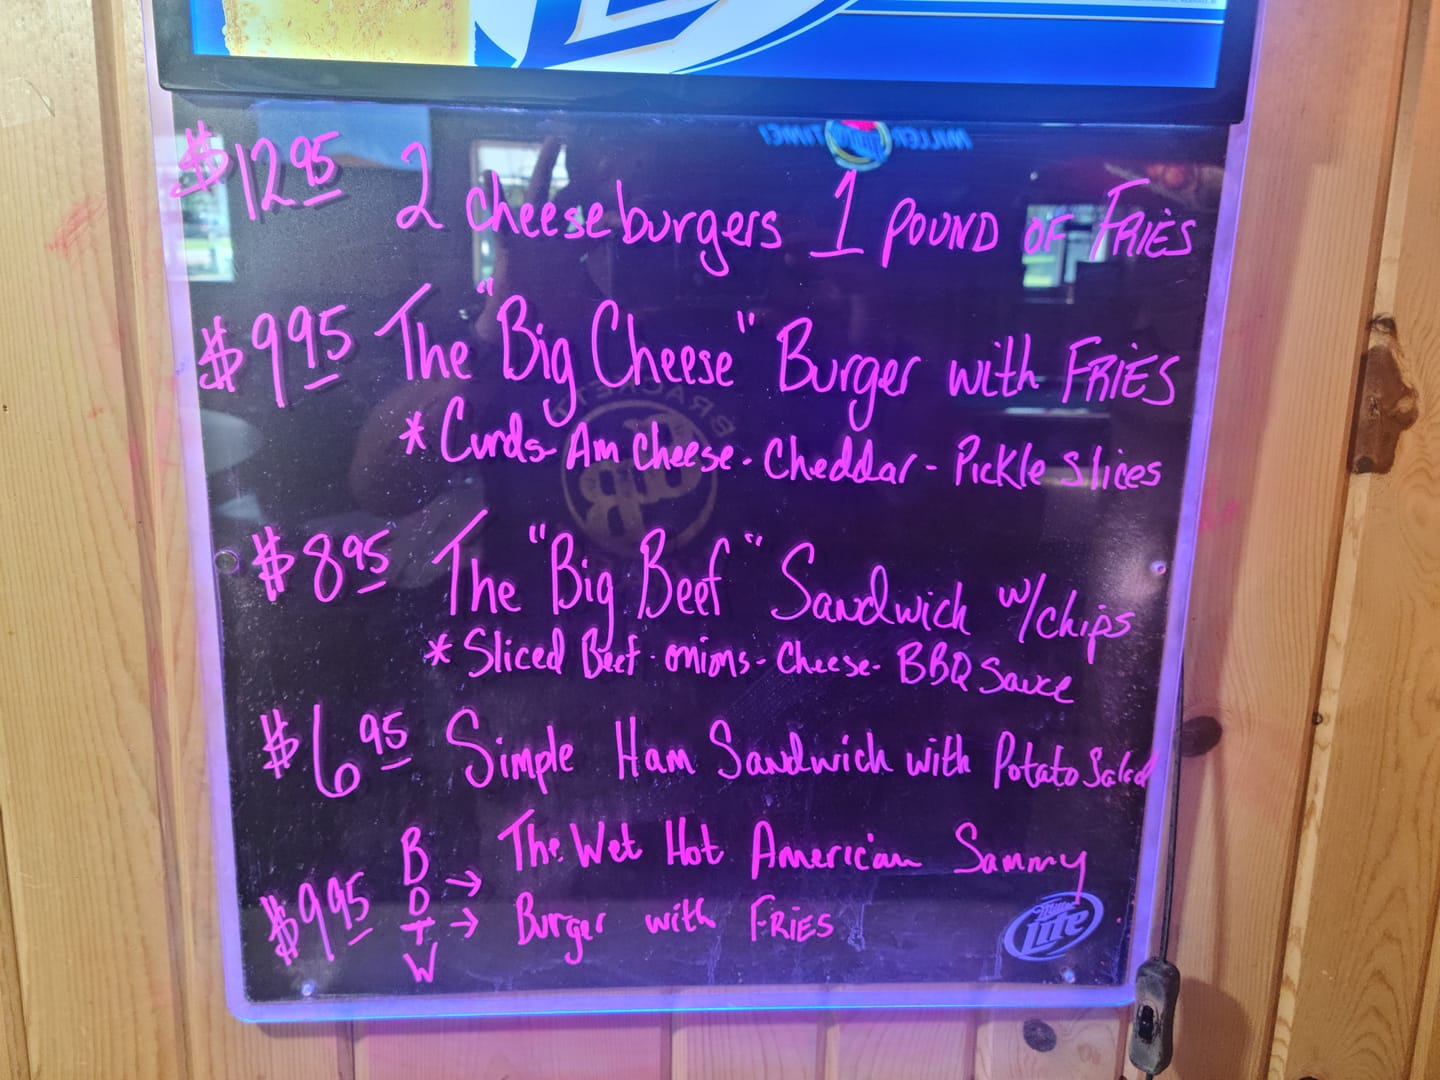 $12.95 2 cheeseburgers 1 POUND OF FRIES
$9.95 The "Big Cheese" Burger with FRIES
* Curds - Am Cheese - Cheddar - Pickle Slices
$8.95 The "Big Beef" Sandwich w/chips
* Sliced Beef - onions - Cheese - BBQ Sauce
$6.95 Simple Ham Sandwich with Potato Salad
$9.95 BDTW → The Wet Hot American Sammy
→ Burger with FRIES
Miller Lite
MILLER TIME!